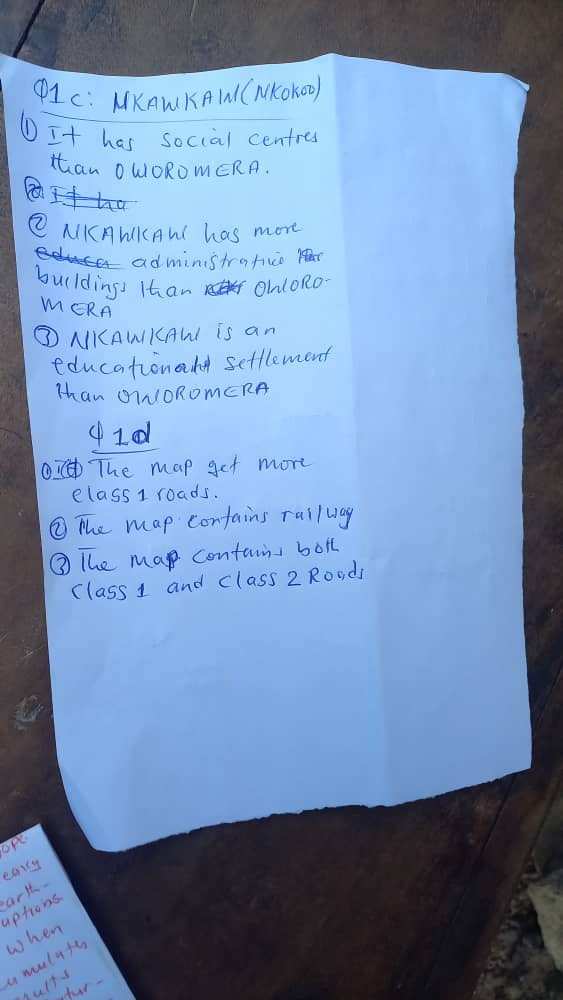 Q1c: NKAWKAW(NKOKOO)
① It has social centres
than OWOROMERA.
② It ha
② NKAWKAW has more
educa administrative
buildings than OWORO-
MERA
③ NKAWKAW is an
educational settlement
than OWOROMERA
Q1d
① The map get more
class 1 roads.
② The map contains railway
③ The map contains both
class 1 and class 2 Roads
ope
eavy
earth-
uptions
when
umulates
sults
tur-